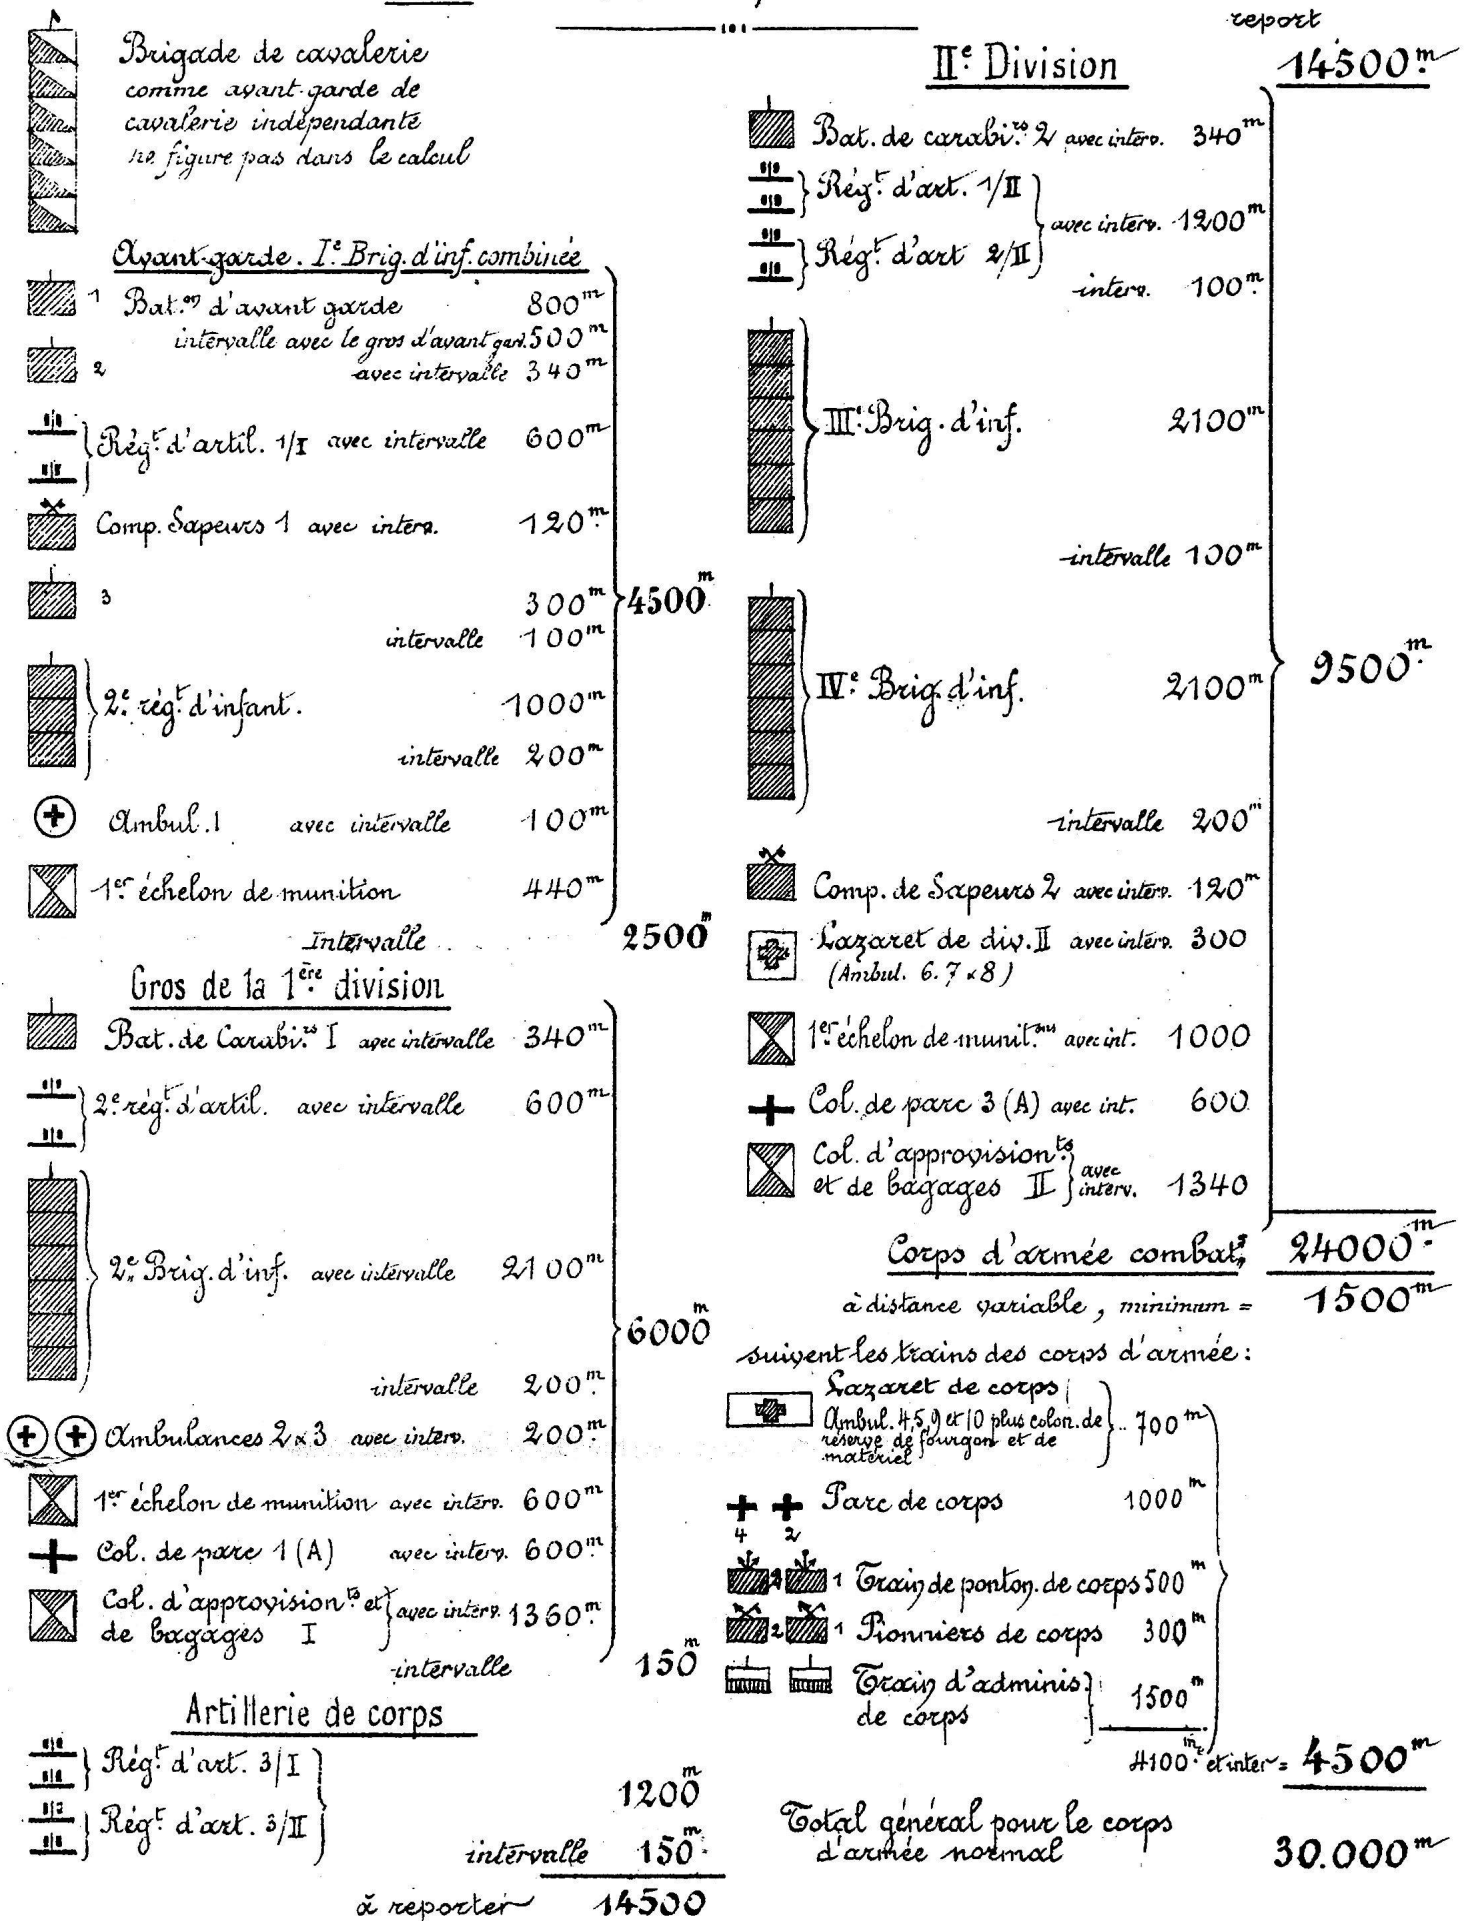 Brigade de cavalerie
comme avant-garde de
cavalerie indépendante
ne figure pas dans le calcul
Avant-garde. Iᵉ Brig. d'inf. combinée
1 Bat.ᵒⁿ d'avant garde 800ᵐ
intervalle avec le gros d'avant gard. 500ᵐ
2 avec intervalle 340ᵐ
Rég.ᵗ d'artil. 1/I avec intervalle 600ᵐ
Comp. Sapeurs 1 avec interv. 120ᵐ
3 300ᵐ
4500ᵐ
intervalle 100ᵐ
2ᵉ rég.ᵗ d'infant. 1000ᵐ
intervalle 200ᵐ
Ambul. 1 avec intervalle 100ᵐ
1ᵉʳ échelon de munition 440ᵐ
Intervalle 2500ᵐ
Gros de la 1ᵉʳᵉ division
Bat. de Carabi.ʳˢ I avec intervalle 340ᵐ
2ᵉ rég.ᵗ d'artil. avec intervalle 600ᵐ
2ᵉ Brig. d'inf. avec intervalle 2100ᵐ
6000ᵐ
intervalle 200ᵐ
Ambulances 2 x 3 avec interv. 200ᵐ
1ᵉʳ échelon de munition avec interv. 600ᵐ
Col. de parc 1 (A) avec interv. 600ᵐ
Col. d'approvision.ᵗˢ et
de bagages I avec interv. 1360ᵐ
intervalle 150ᵐ
Artillerie de corps
Rég.ᵗ d'art. 3/I
1200ᵐ
Rég.ᵗ d'art. 3/II
intervalle 150ᵐ
à reporter 14500
report
IIᵉ Division 14500ᵐ
Bat. de carabi.ʳˢ 2 avec interv. 340ᵐ
Rég.ᵗ d'art. 1/II
avec interv. 1200ᵐ
Rég.ᵗ d'art 2/II
interv. 100ᵐ
IIIᵉ Brig. d'inf. 2100ᵐ
intervalle 100ᵐ
9500ᵐ
IVᵉ Brig. d'inf. 2100ᵐ
intervalle 200ᵐ
Comp. de Sapeurs 2 avec interv. 120ᵐ
Lazaret de div. II avec interv. 300
(Ambul. 6. 7 x 8)
1ᵉʳ échelon de munit.ᵒⁿˢ avec int. 1000
Col. de parc 3 (A) avec int. 600
Col. d'approvision.ᵗˢ
et de bagages II avec interv. 1340
Corps d'armée combat.ᵗ 24000ᵐ
à distance variable, minimum = 1500ᵐ
suivent les trains des corps d'armée :
Lazaret de corps
Ambul. 4,5,9 et 10 plus colon. de
réserve de fourgon et de
matériel .. 700ᵐ
Parc de corps 1000ᵐ
4 2
2 1 Train de ponton. de corps 500ᵐ
2 1 Pionniers de corps 300ᵐ
Train d'adminis.
de corps 1500ᵐ
4100ᵐ et inter = 4500ᵐ
Total général pour le corps
d'armée normal 30.000ᵐ